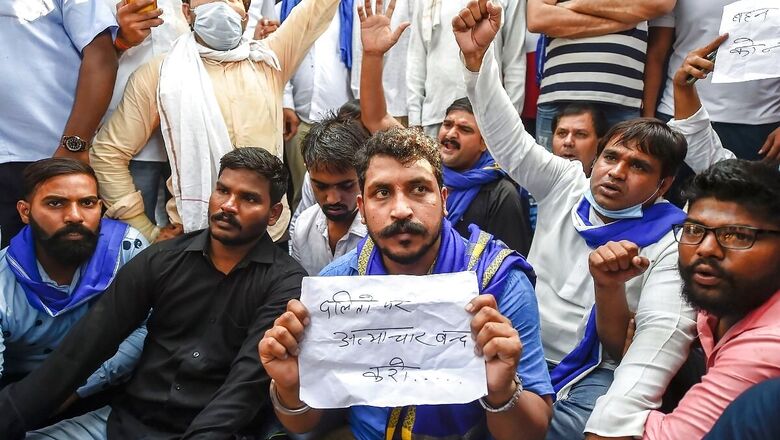 दलितों पर
अत्याचार बन्द
करो......
बहन